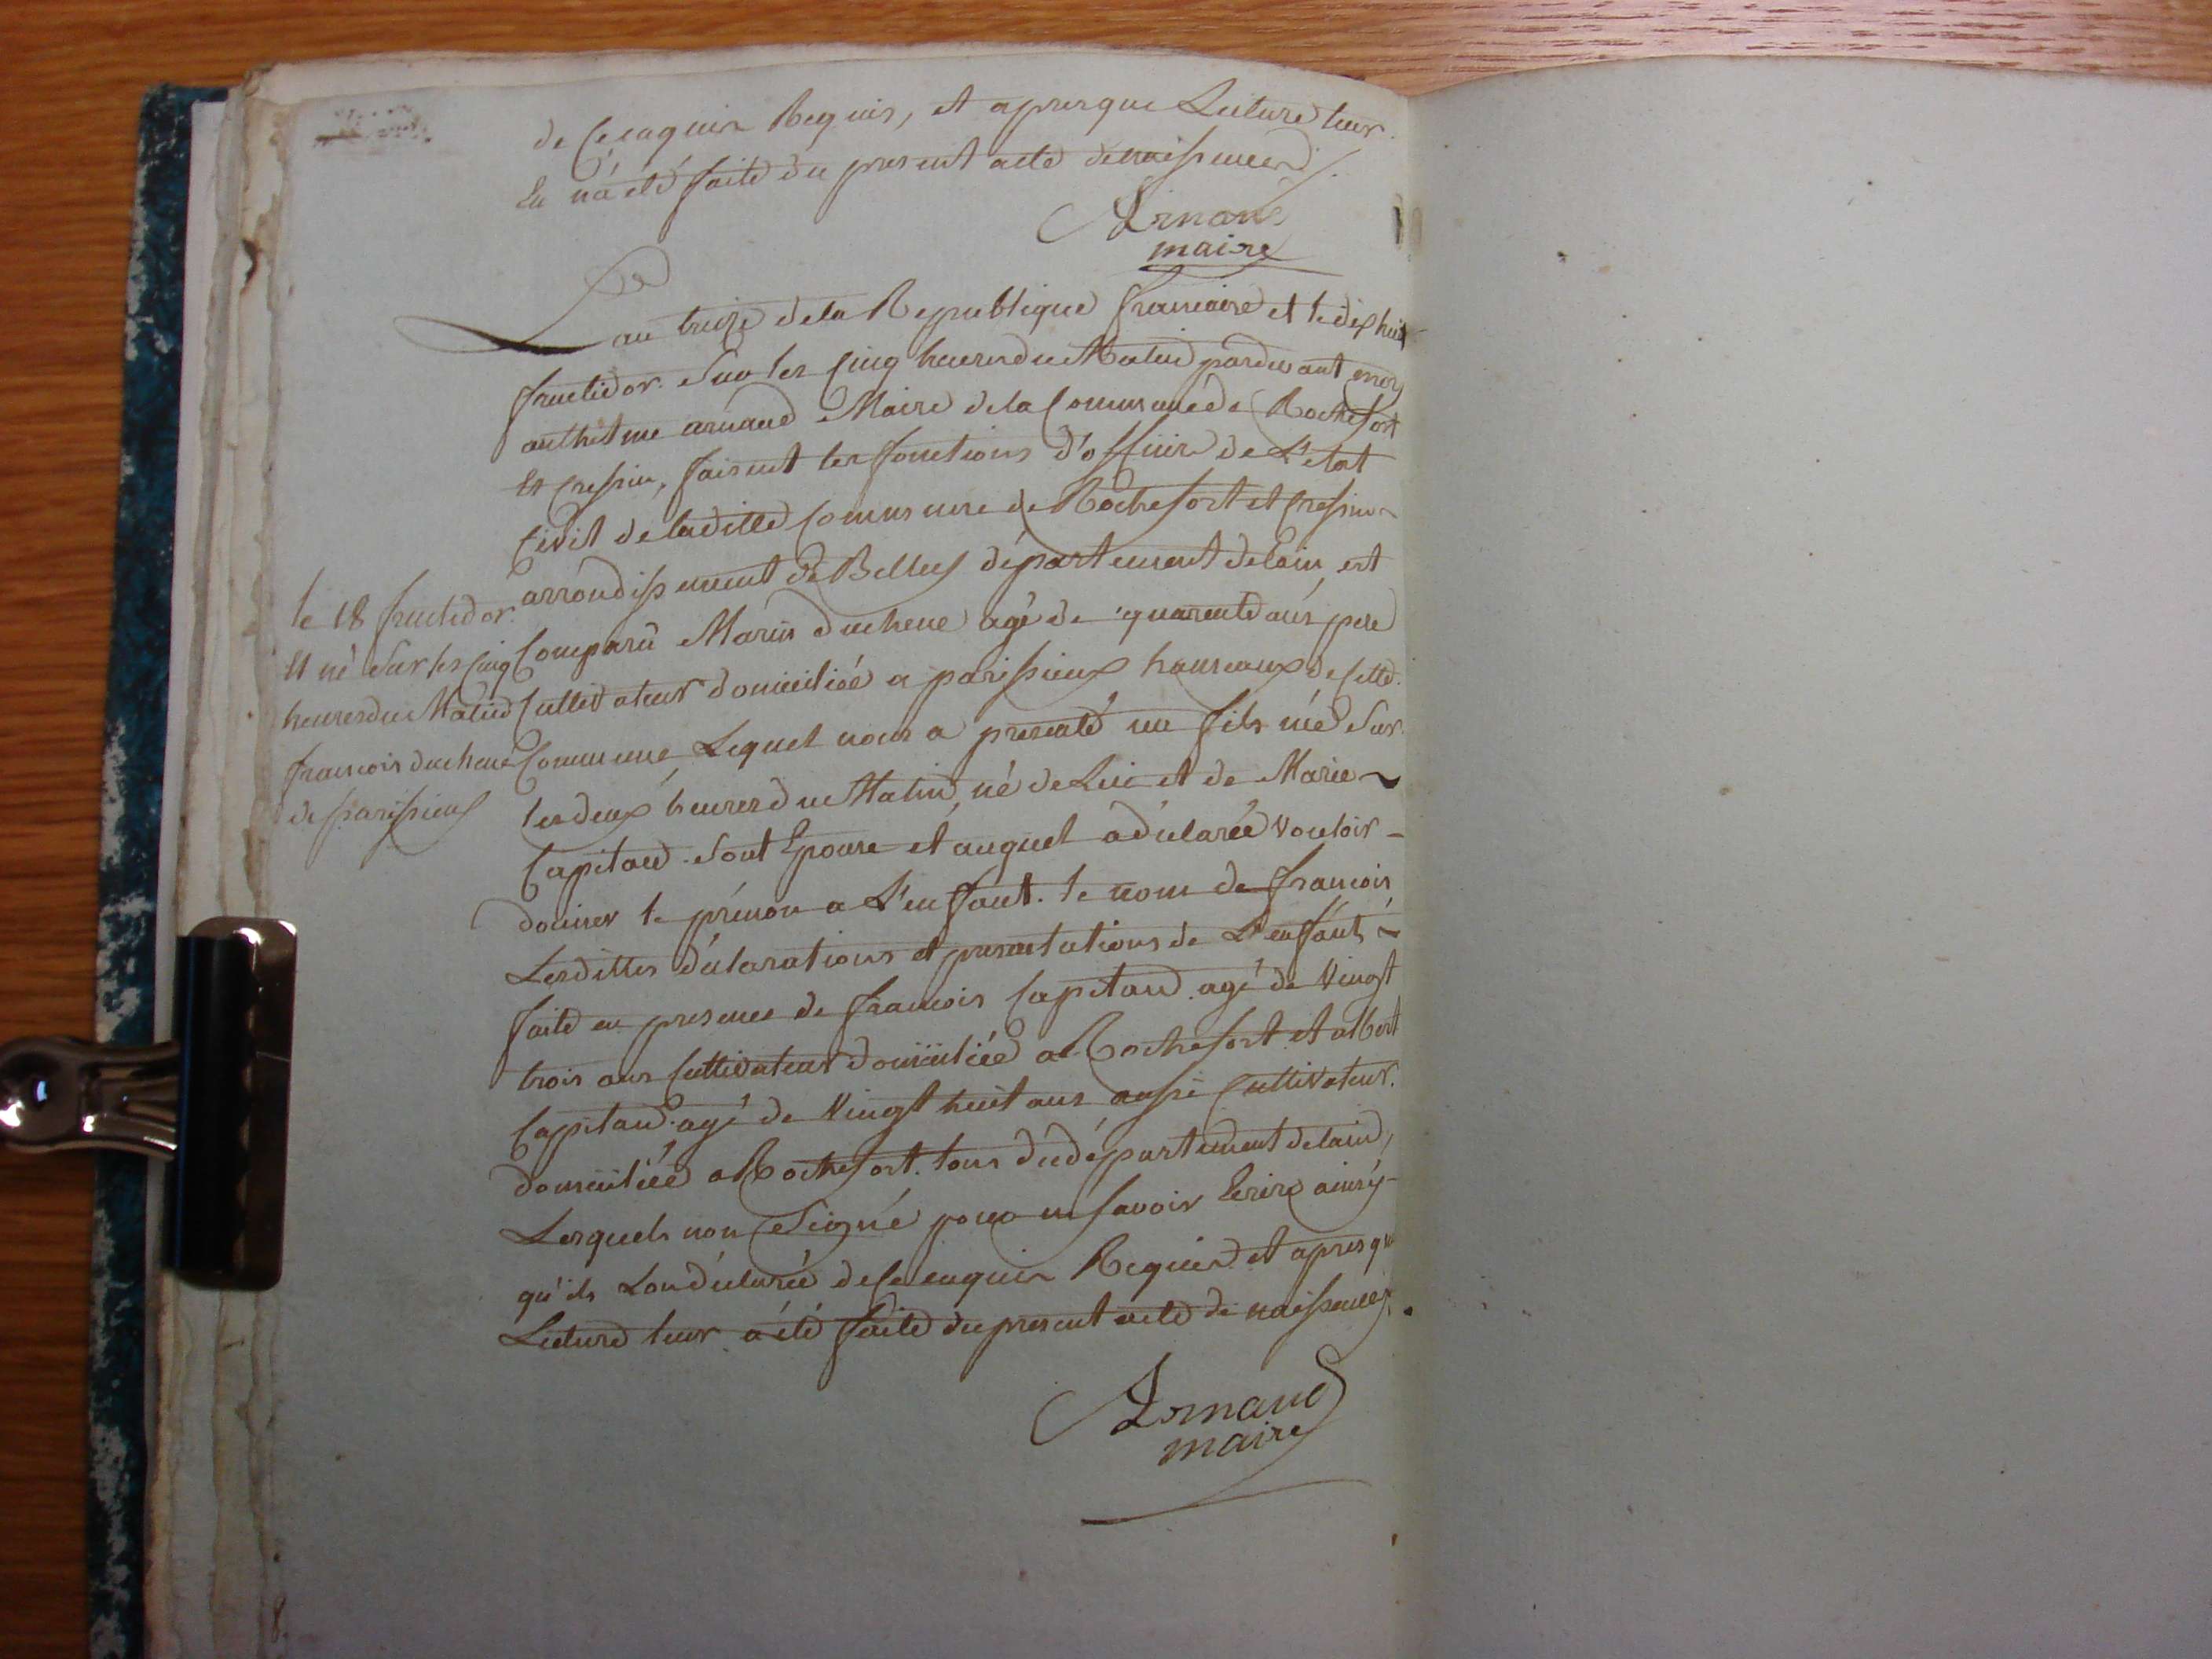 de ce enquir Requis, et apresque Lecture leur
En ná été faite du present acte denaissance
Arnaud
maire
Lan treize dela Republique francaise et le dix huit
fructidor. Sur les cinq heures du Matin pardevant moy
anthelme arnaud Maire dela Commune de Rochefort
Et Cressin, faisent les fonctions d'officier de L'etat
Civil de ladite Commune de Rochefort et Cressin
arrondissement de Belley département delain, est
Comparû Marin duchene agé de quarente ans pere
Cultivateur domicilié a parissieux hameaux de cette
Commune, Lequel nous a presenté un fils né Sur
les deux heures du Matin, né de Lui et de Marie
Capitand Sont Epouse et auquel a déclarée vouloir
donner le prénon a L'enfant. le nom de francois,
Lesdittes déclarations et presentations de L'enfánt
faite en presence de francois Capitand agé de Vingt
trois ans Cultivateur domicilié a Rochefort et albert
Capitand agé de Vingt huit ans aussi Cultivateur
domicilié a Rochefort. tous du département delain,
Lesquels non Signé pour ne savoir Ecrire ainsy
qu'ils Lon déclarée de ce enquir Requied et apresque
Lecture leur a été faite du present acte de naissance.
Arnaud
maire
le 18 fructidor.
Et né Sur les cinq
heures du Matin
francois duchene
de parissieux
8